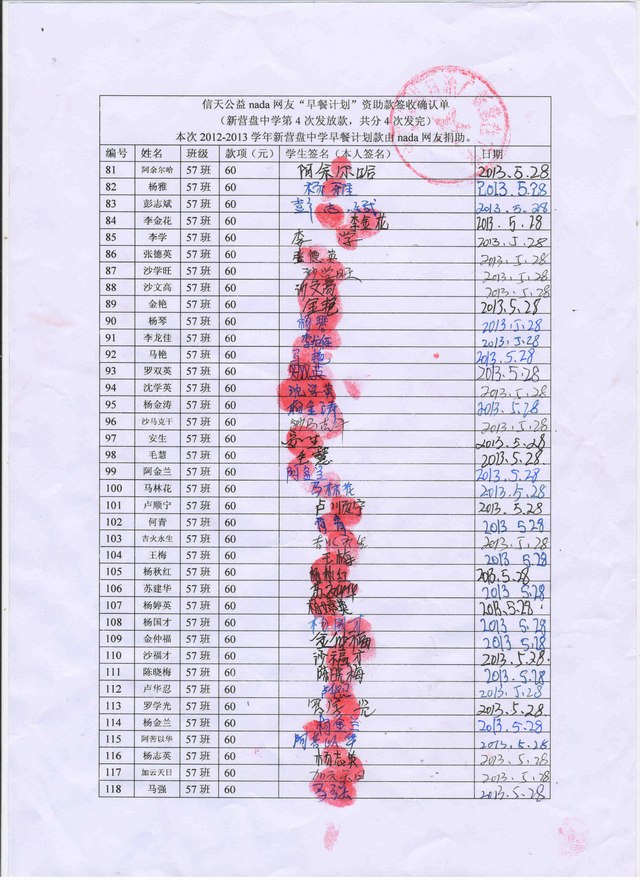 信天公益 nada 网友“早餐计划”资助款签收确认单
（新营盘中学第 4 次发放款，共分 4 次发完）
本次 2012-2013 学年新营盘中学早餐计划款由 nada 网友捐助。
编号 姓名 班级 款项（元） 学生签名（本人签名） 日期
81 阿余尔哈 57 班 60 阿余尔哈 2013.5.28
82 杨雅 57 班 60 杨雅 2013 5.28
83 彭志斌 57 班 60 彭志斌 2013.5.28
84 李金花 57 班 60 李金花 2013.5.28
85 李学 57 班 60 李学 2013.5.28
86 张德英 57 班 60 张德英 2013.5.28
87 沙学旺 57 班 60 沙学旺 2013.5.28
88 沙文高 57 班 60 沙文高 2013.5.28
89 金艳 57 班 60 金艳 2013.5.28
90 杨琴 57 班 60 杨琴 2013.5.28
91 李龙佳 57 班 60 李龙佳 2013.5.28
92 马艳 57 班 60 马艳 2013.5.28
93 罗双英 57 班 60 罗双英 2013.5.28
94 沈学英 57 班 60 沈学英 2013.5.28
95 杨金涛 57 班 60 杨金涛 2013.5.28
96 沙马克干 57 班 60 沙马克干 2013.5.28
97 安生 57 班 60 安生 2013.5.28
98 毛慧 57 班 60 毛慧 2013.5.28
99 阿金兰 57 班 60 阿金兰 2013.5.28
100 马林花 57 班 60 马林花 2013.5.28
101 卢顺宁 57 班 60 卢顺宁 2013.5.28
102 何青 57 班 60 何青 2013 5.28
103 吉火永生 57 班 60 2013.5.28
104 王梅 57 班 60 王梅 2013 5.28
105 杨秋红 57 班 60 杨秋红 2013.5.28
106 苏建华 57 班 60 苏建华 2013 5.28
107 杨婷英 57 班 60 杨婷英 2013.5.28
108 杨国才 57 班 60 杨国才 2013 5.28
109 金仲福 57 班 60 金仲福 2013 5.28
110 沙福才 57 班 60 沙福才 2013.5.28
111 陈晓梅 57 班 60 陈晓梅 2013.5.28
112 卢华忍 57 班 60 2013.5.28
113 罗学光 57 班 60 罗学光 2013.5.28
114 杨金兰 57 班 60 杨金兰 2013.5.28
115 阿苦以华 57 班 60 阿苦以华 2013.5.28
116 杨志英 57 班 60 杨志英 2013.5.28
117 加云天日 57 班 60 2013.5.28
118 马强 57 班 60 马强 2013.5.28